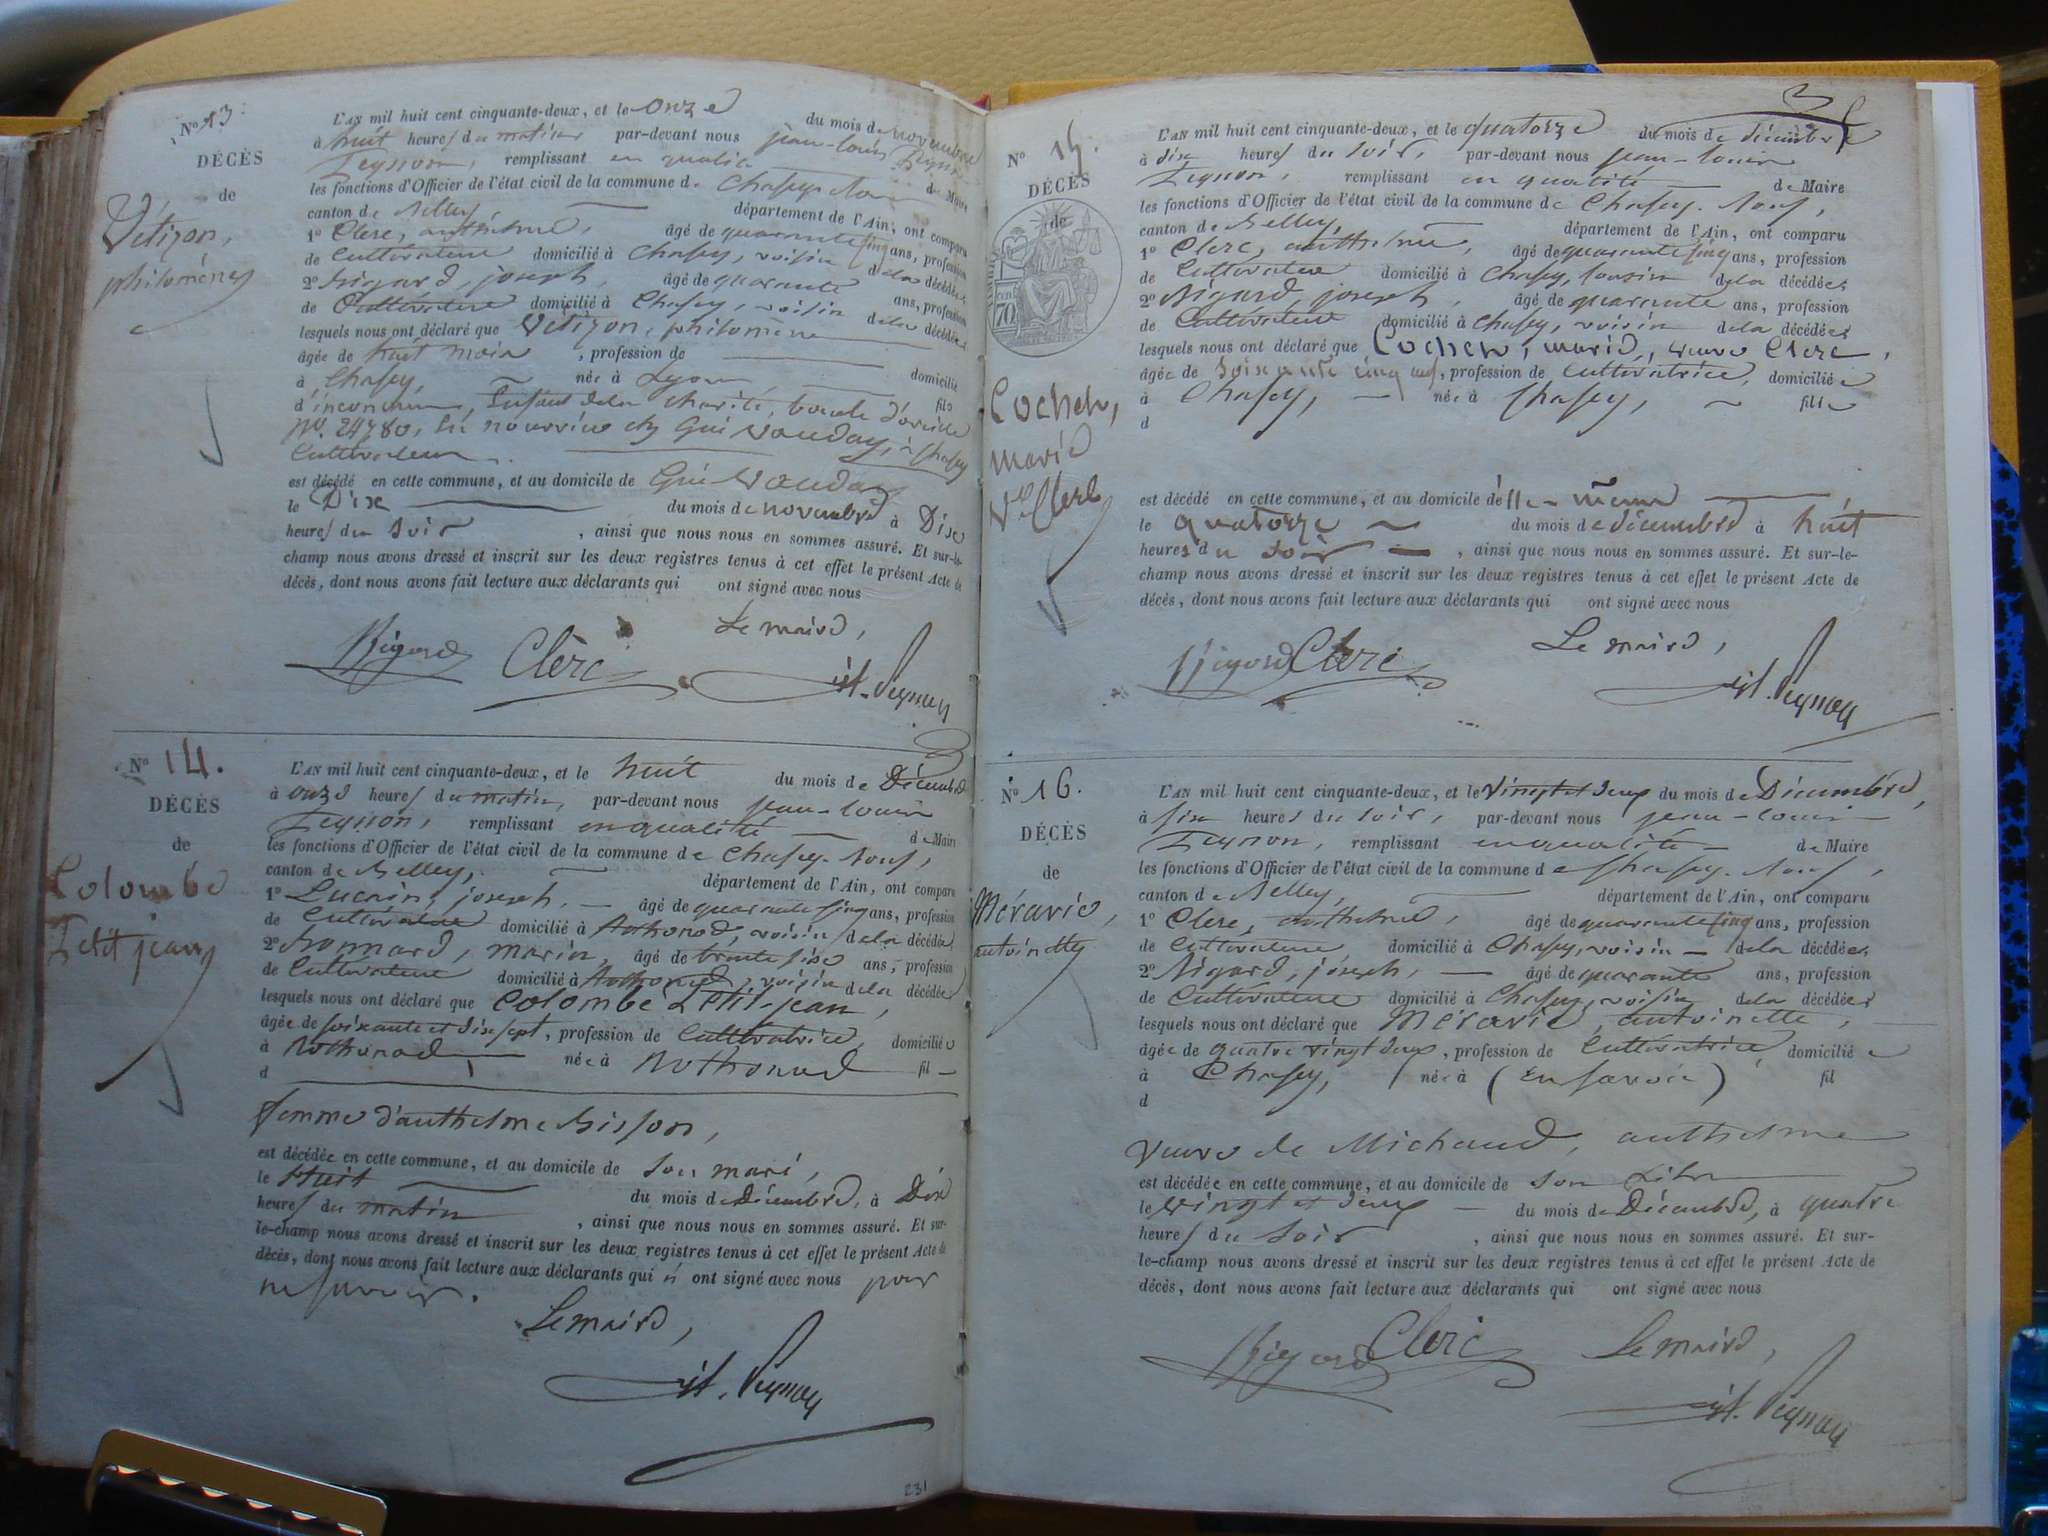 No 13.
DÉCÈS
de
Vétizon,
philomène
L'AN mil huit cent cinquante-deux, et le onze du mois de novembre
à huit heures du matin par-devant nous jean-louis
Peynon, remplissant en qualité de Maire
les fonctions d'Officier de l'état civil de la commune de Chasey-
canton de Belley département de l'Ain, ont comparu
1o Clerc, anthelme, âgé de quarante cinq ans, profession
de Cultivateur domicilié à Chasey, voisin de la décédée,
2o Rigard, joseph, âgé de quarante ans, profession
de Cultivateur domicilié à Chasey, voisin de la décédée,
lesquels nous ont déclaré que Vétizon, philomène
âgée de huit mois, profession de domicilié
à Chasey, née à Lyon fils
d'inconnu, Enfant de la charité, boucle d'oreille
No. 24780, en nourrice chez Gui Vauday, à Chasey
Cultivateur.
est décédé en cette commune, et au domicile de Gui Vauday
le Dix du mois de novembre à Dix
heures du soir, ainsi que nous nous en sommes assuré. Et sur-le-
champ nous avons dressé et inscrit sur les deux registres tenus à cet effet le présent Acte de
décès, dont nous avons fait lecture aux déclarants qui ont signé avec nous
Le maire,
Rigard Clerc Peynon
No 14.
DÉCÈS
de
Colombe
Petit jean
L'AN mil huit cent cinquante-deux, et le huit du mois de Décembre
à onze heures du matin, par-devant nous jean-louis
Peynon, remplissant en qualité de Maire
les fonctions d'Officier de l'état civil de la commune de Chasey-Bons,
canton de Belley, département de l'Ain, ont comparu
1o Lucain, joseph, âgé de quarante cinq ans, profession
de Cultivateur domicilié à Rothonod, voisin de la décédée
2o Bonnard, marin, âgé de trente six ans, profession
de Cultivateur domicilié à Rothonod, voisin de la décédée
lesquels nous ont déclaré que Colombe Petit-jean,
âgée de soixante et dix sept, profession de Cultivatrice, domiciliée
à Rothonod, née à Rothonod fil
d
femme d'anthelme Bisson,
est décédée en cette commune, et au domicile de son mari,
le Huit du mois de Décembre, à Dix
heures du matin, ainsi que nous nous en sommes assuré. Et sur-
le-champ nous avons dressé et inscrit sur les deux registres tenus à cet effet le présent Acte de
décès, dont nous avons fait lecture aux déclarants qui n'ont signé avec nous pour
ne savoir.
Le maire,
Peynon
231
No 15.
DÉCÈS
de
70
Cochet,
marie
Ve Clerc
L'AN mil huit cent cinquante-deux, et le quatorze du mois de décembre
à dix heures du soir, par-devant nous jean-louis
Peynon, remplissant en qualité de Maire
les fonctions d'Officier de l'état civil de la commune de Chasey-Bons,
canton de Belley, département de l'Ain, ont comparu
1o Clerc, anthelme, âgé de quarante cinq ans, profession
de Cultivateur domicilié à Chasey, cousin de la décédée,
2o Rigard, joseph, âgé de quarante ans, profession
de Cultivateur domicilié à Chasey, voisin de la décédée
lesquels nous ont déclaré que Cochet, marie, veuve Clerc,
âgée de soixante cinq ans, profession de Cultivatrice, domiciliée
à Chasey, née à Chasey, fille
d
est décédé en cette commune, et au domicile d'elle-même,
le quatorze du mois de décembre à huit
heures du soir, ainsi que nous nous en sommes assuré. Et sur-le-
champ nous avons dressé et inscrit sur les deux registres tenus à cet effet le présent Acte de
décès, dont nous avons fait lecture aux déclarants qui ont signé avec nous
Le maire,
Rigard Clerc Peynon
No 16.
DÉCÈS
de
Méravie,
antoinette
L'AN mil huit cent cinquante-deux, et le vingt et deux du mois de Décembre,
à six heures du soir, par-devant nous jean-louis
Peynon, remplissant en qualité de Maire
les fonctions d'Officier de l'état civil de la commune de Chasey-Bons,
canton de Belley, département de l'Ain, ont comparu
1o Clerc, anthelme, âgé de quarante cinq ans, profession
de Cultivateur domicilié à Chasey, voisin de la décédée,
2o Rigard, joseph, âgé de quarante ans, profession
de Cultivateur domicilié à Chasey, voisin de la décédée
lesquels nous ont déclaré que Méravie, antoinette,
âgée de quatre vingt deux, profession de Cultivatrice domiciliée
à Chasey, née à (en savoie) fil
d
veuve de Michaud, anthelme
est décédée en cette commune, et au domicile de son
le vingt et deux du mois de Décembre, à quatre
heures du soir, ainsi que nous nous en sommes assuré. Et sur-
le-champ nous avons dressé et inscrit sur les deux registres tenus à cet effet le présent Acte de
décès, dont nous avons fait lecture aux déclarants qui ont signé avec nous
Rigard Clerc Le maire,
Peynon